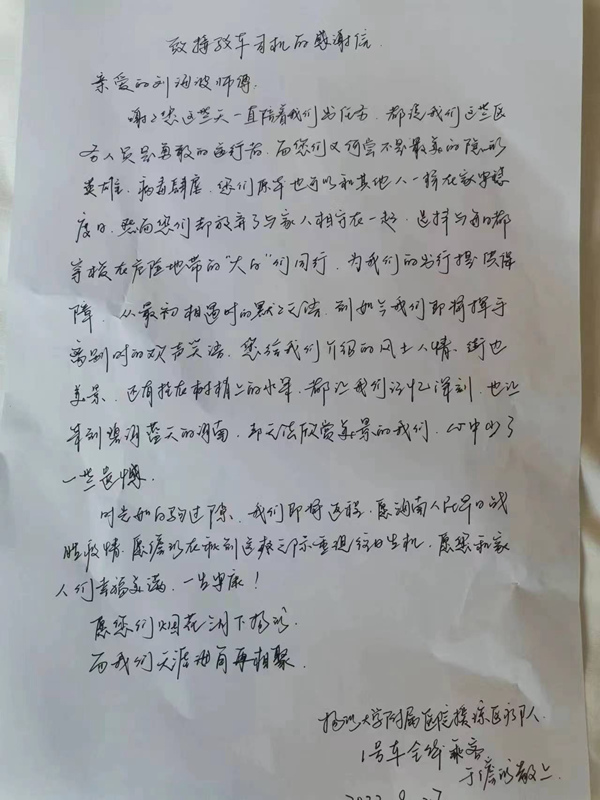 致接驳车司机的感谢信
亲爱的刘海波师傅:
谢谢您这些天一直陪着我们出任务,都说我们这些医
务人员是勇敢的逆行者,而您们又何尝不是最美的隐形
英雄,病毒肆虐,您们原本也可以和其他人一样在家安稳
度日,然而您们却放弃了与家人相守在一起,选择与每日都
穿梭在危险地带的“大白”们同行,为我们的出行提供保
障,从最初相遇时的默默无语,到如今我们即将挥手
离别时的欢声笑语,您给我们介绍的风土人情、街边
美景,还有挂在树梢上的水果,都让我们记忆深刻,也让
来到碧海蓝天的海南,却无法欣赏美景的我们,心中少了
一些遗憾。
时光如白驹过隙,我们即将返程,愿海南人民早日战
胜疫情,愿儋州在秋到这般之际重现往日生机,愿您和家
人们幸福美满,一生安康!
愿您们烟花三月下扬州
而我们天涯海角再相聚.
扬州大学附属医院援琼医疗队
1号车全体乘客
于儋州敬上
2022.9.27